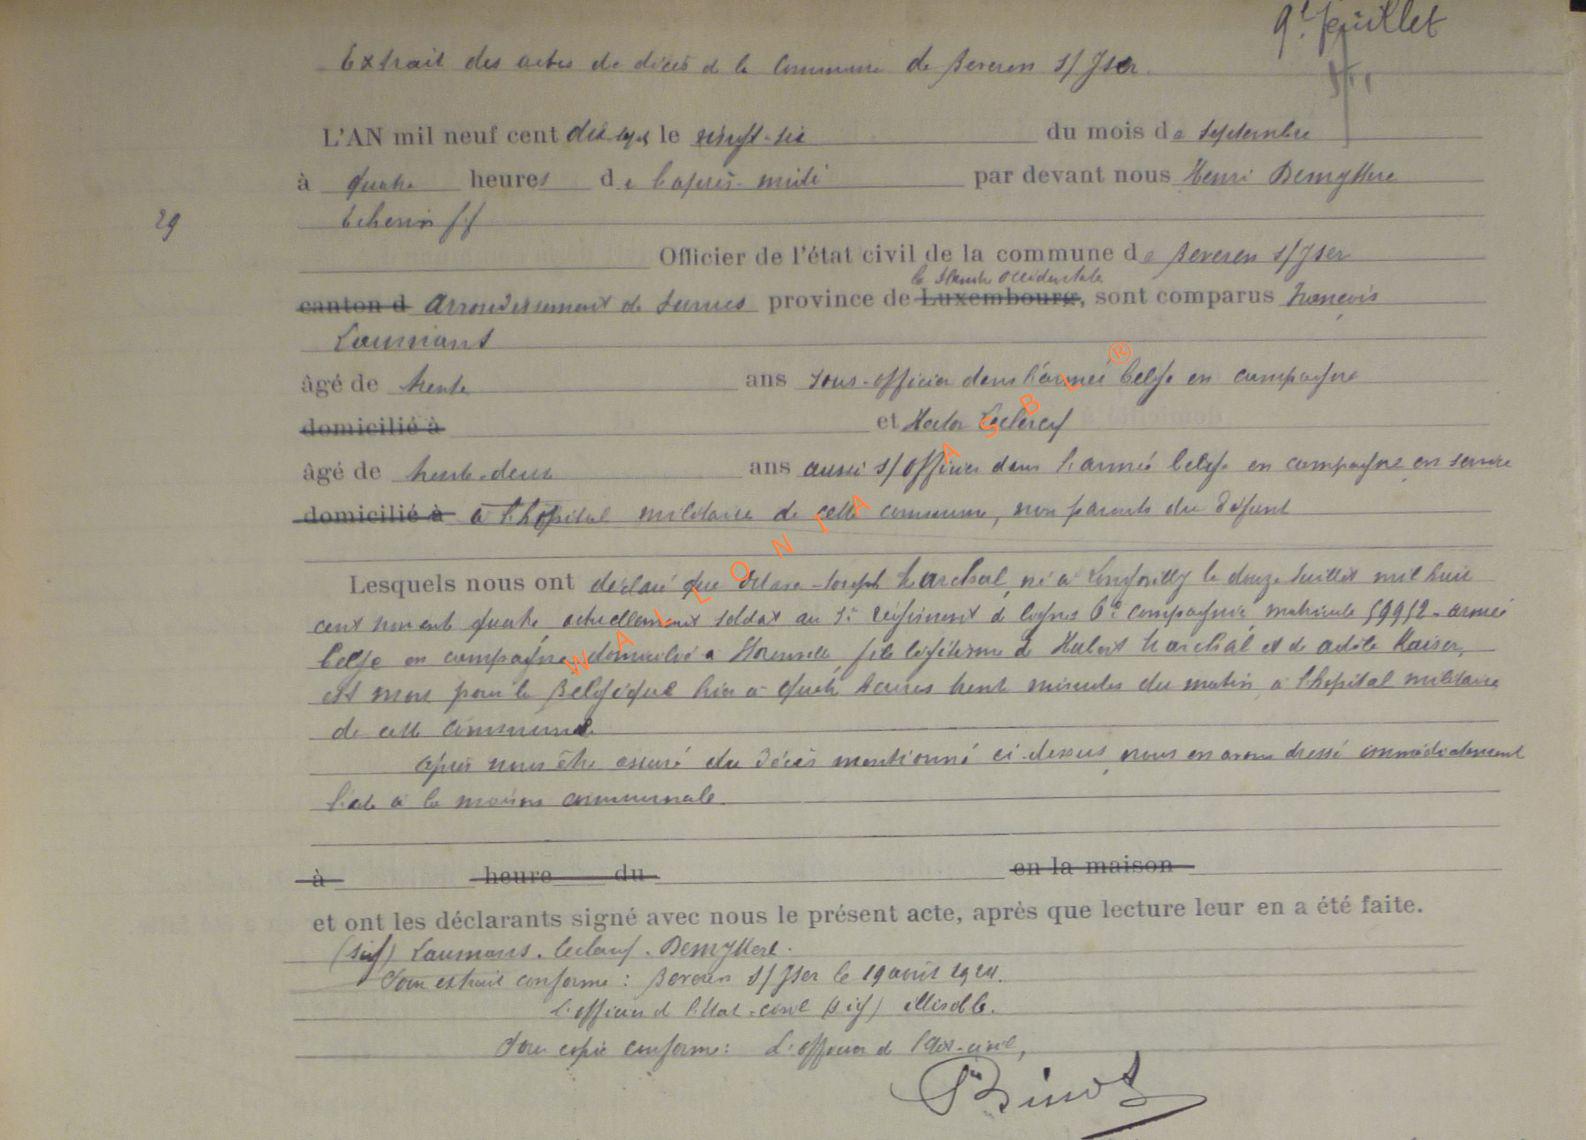 9t juillet
Extrait des actes de décès de la Commune de Beveren s/Yser.
L'AN mil neuf cent dix-sept le vingt-six du mois de septembre
à quatre heures de l'après-midi par devant nous Henri Demyttere
29
Echevin ff
Officier de l'état civil de la commune de Beveren s/Yser
la Flandre Occidentale
canton d arrondissement de Furnes province de Luxembourg, sont comparus François
Laumans
âgé de trente ans sous-officier dans l'armée belge en campagne
domicilié à et Hector Leclercq
âgé de trente-deux ans aussi s/officier dans l'armée belge en campagne en service
domicilié à à l'hôpital militaire de cette commune, non parents du défunt
Lesquels nous ont déclaré que Joseph Marchal, né à le douze Juillet mil huit
cent nonante quatre actuellement soldat au régiment de lignes 6e compagnie matricule armée
belge en campagne domicilié à fils légitime de Hubert Marchal et de Adèle Kaiser,
est mort pour la Belgique hier à quatre heures trente minutes du matin, à l'hopital militaire
de cette commune.
Après nous être assuré du décès mentionné ci-dessus, nous en avons dressé immédiatement
l'acte à la maison communale.
à heure du en la maison
et ont les déclarants signé avec nous le présent acte, après que lecture leur en a été faite.
(sig) Laumans. Leclercq. Demyttere.
Pour extrait conforme: Beveren s/Yser le 19 avril
L'officier de l'Etat-civil (sig) illisible.
Pour copie conforme: L'officier de l'Etat-civil,
WALLONIA ASBL ®